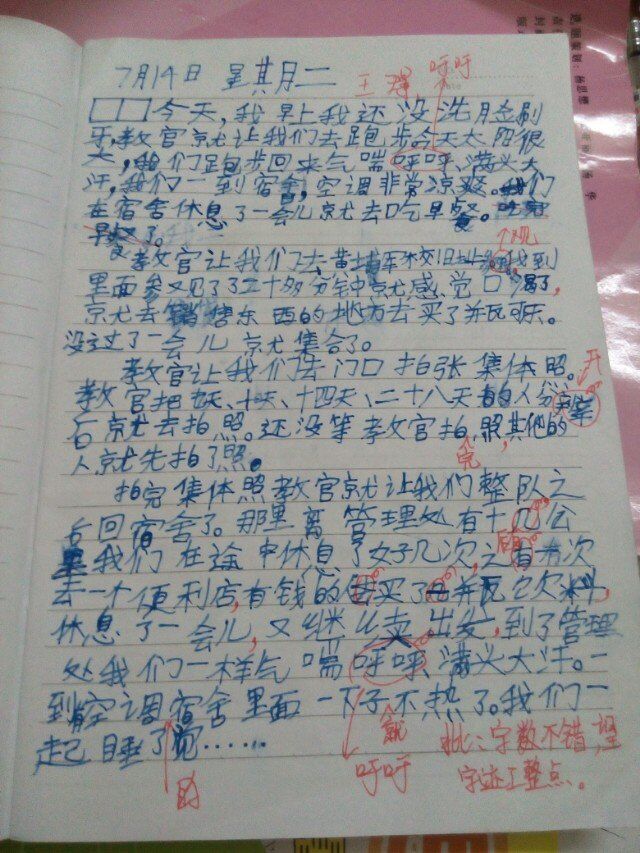 7月14日 星其月二 王 瑾 呼吁
今天,我早上我还没洗脸刷
牙,教官就让我们去跑步今天太阳很
大,我们跑步回来气喘呼呼、满头大
汗,我们一到宿舍,空调非常凉爽。我们
在宿舍休息了一会儿就去吃早餐。吃完
早餐了。
教官让我们去黄埔军校旧址参观,我到
里面参见了三十多分钟就感觉口渴了,
就去销售东西的地方去买了并瓦可乐。
没过了一会儿就集合了。
教官让我们去门口拍张集体照。开
教官把妖、十天、十四天、二十八天的人分
后就去拍照。还没等教官拍完照,其他的
人就先拍了照。
拍完集体照教官就让我们整队之
后回宿舍了。那里离管理处有十几公
里我们在途中休息了好几次,之后有一次
去一个便利店,有钱的买了一并瓦饮料,
休息了一会儿,又继续出发,到了管理
处我们一样气喘呼呼、满头大汗。一
到空调宿舍里面一下子就不热了。我们一
起睡了觉……
呼吁
批:字数不错,望
字迹工整点。